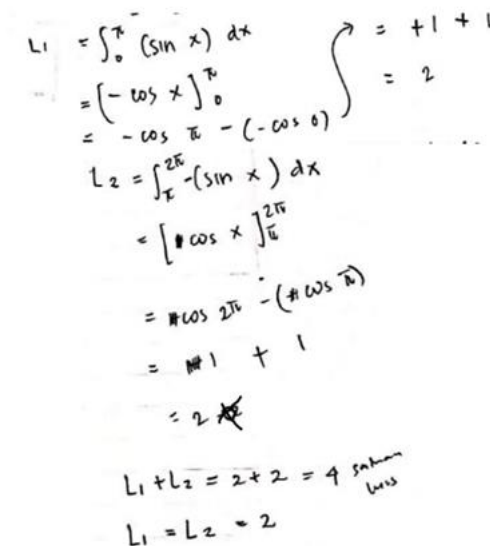 L₁ = ∫₀^π (sin x) dx
= [-cos x]₀^π
= -cos π - (-cos 0)
= +1 + 1
= 2
L₂ = ∫_π^2π -(sin x) dx
= [cos x]_π^2π
= cos 2π - (cos π)
= 1 + 1
= 2
L₁ + L₂ = 2 + 2 = 4 satuan luas
L₁ = L₂ = 2